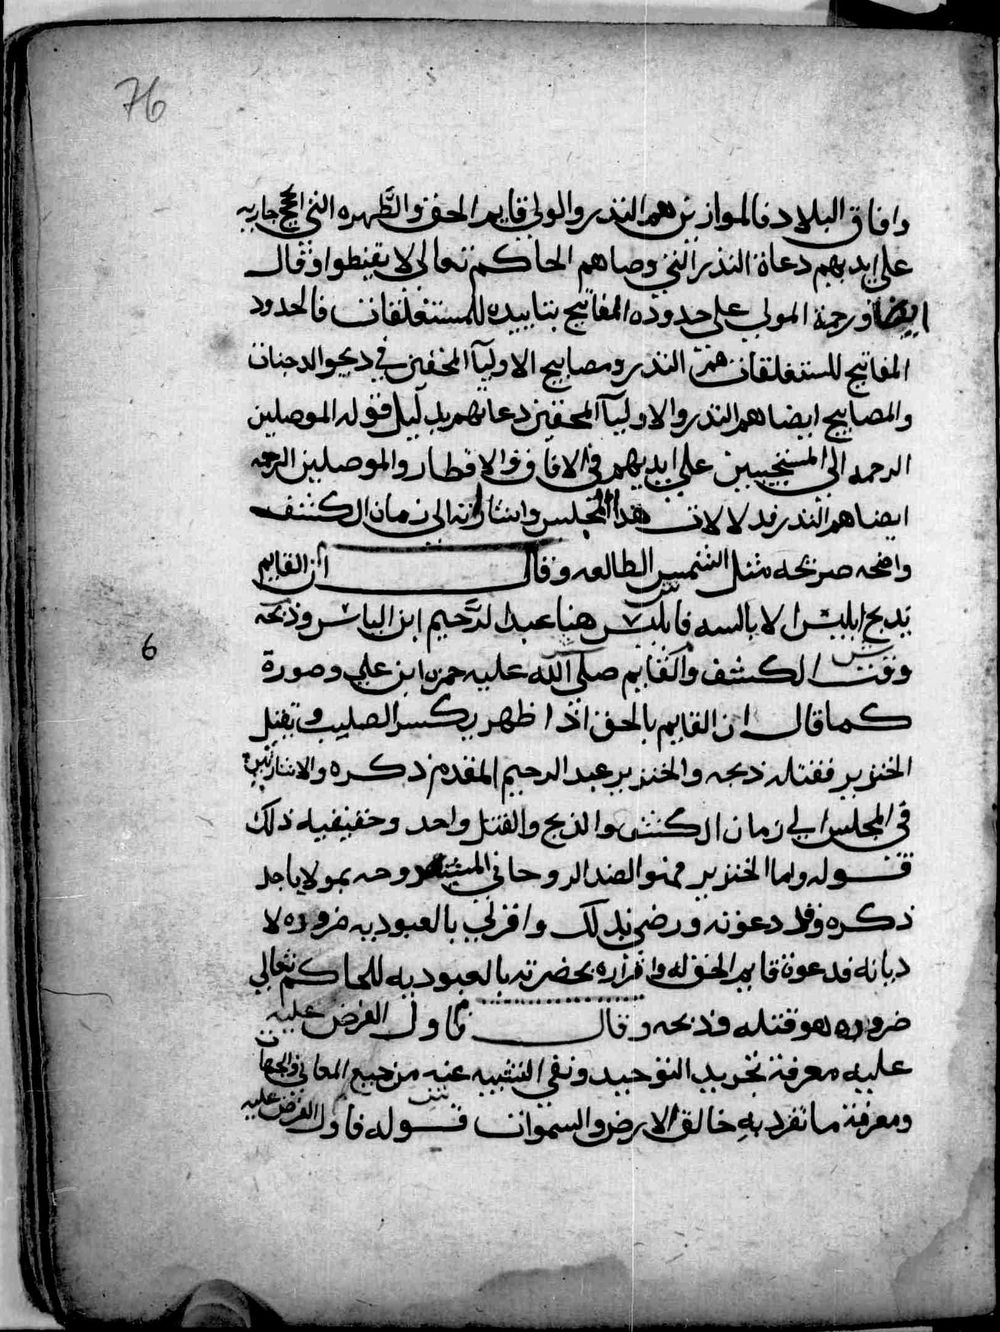 76
وافاق البلاد فالموازين هم النذر والولي قايم الحق والظهره التي الحجج جاريه
على ايديهم دعاة النذر التي وصاهم الحاكم تعالى لا يقنطوا وقال
ايضا ورحمة المولى على حدوده المفاتيح بتاييده للمستغلقات فالحدود
المفاتيح للمستغلقات هم النذر ومصابيح الاوليآ المحقين في ديجو الدجنات
والمصابيح ايضا هم النذر والاوليآ المحقين دعاتهم بدليل قوله الموصلين
الرحمه الى المستجيبين على ايديهم في الافاق والاقطار والموصلين الرحمه
ايضا هم النذر فدلالات هذا المجلس واشاراته الى زمان الكشف
واضحه صريحه مثل الشمس الطالعه وقال ان القايم
يذبح ابليس الابالسه فابليس هنا عبد الرحيم ابن الياس وذبحه
وقت الكشف والقايم صلى الله عليه حمزه ابن علي وصورة
6
كما قال ان القايم بالحق اذا ظهر يكسر الصليب ويقتل
الخنزير فقتله ذبحه والخنزير عبد الرحيم المقدم ذكره والاشارتين
في المجلس الى زمان الكشف والذبح والقتل واحد وحقيقيه ذلك
قوله واما الخنزير فهو الضد الروحاني روحه بمولانا جل
ذكره وقد دعوته ورضي بذلك واقر لي بالعبوديه ضروره لا
ديانه فدعوة قايم الحق له واقراره بحضرته بالعبوديه للحاكم تعالى
ضروره هو قتله وذبحه وقال فاول الفرض عليه
عليه معرفة تجريد التوحيد ونفي التشبيه عنه من جميع المعاني والجهات
ومعرفة ما تفرد به خالق الارض والسموات قوله فاول الفرض عليه